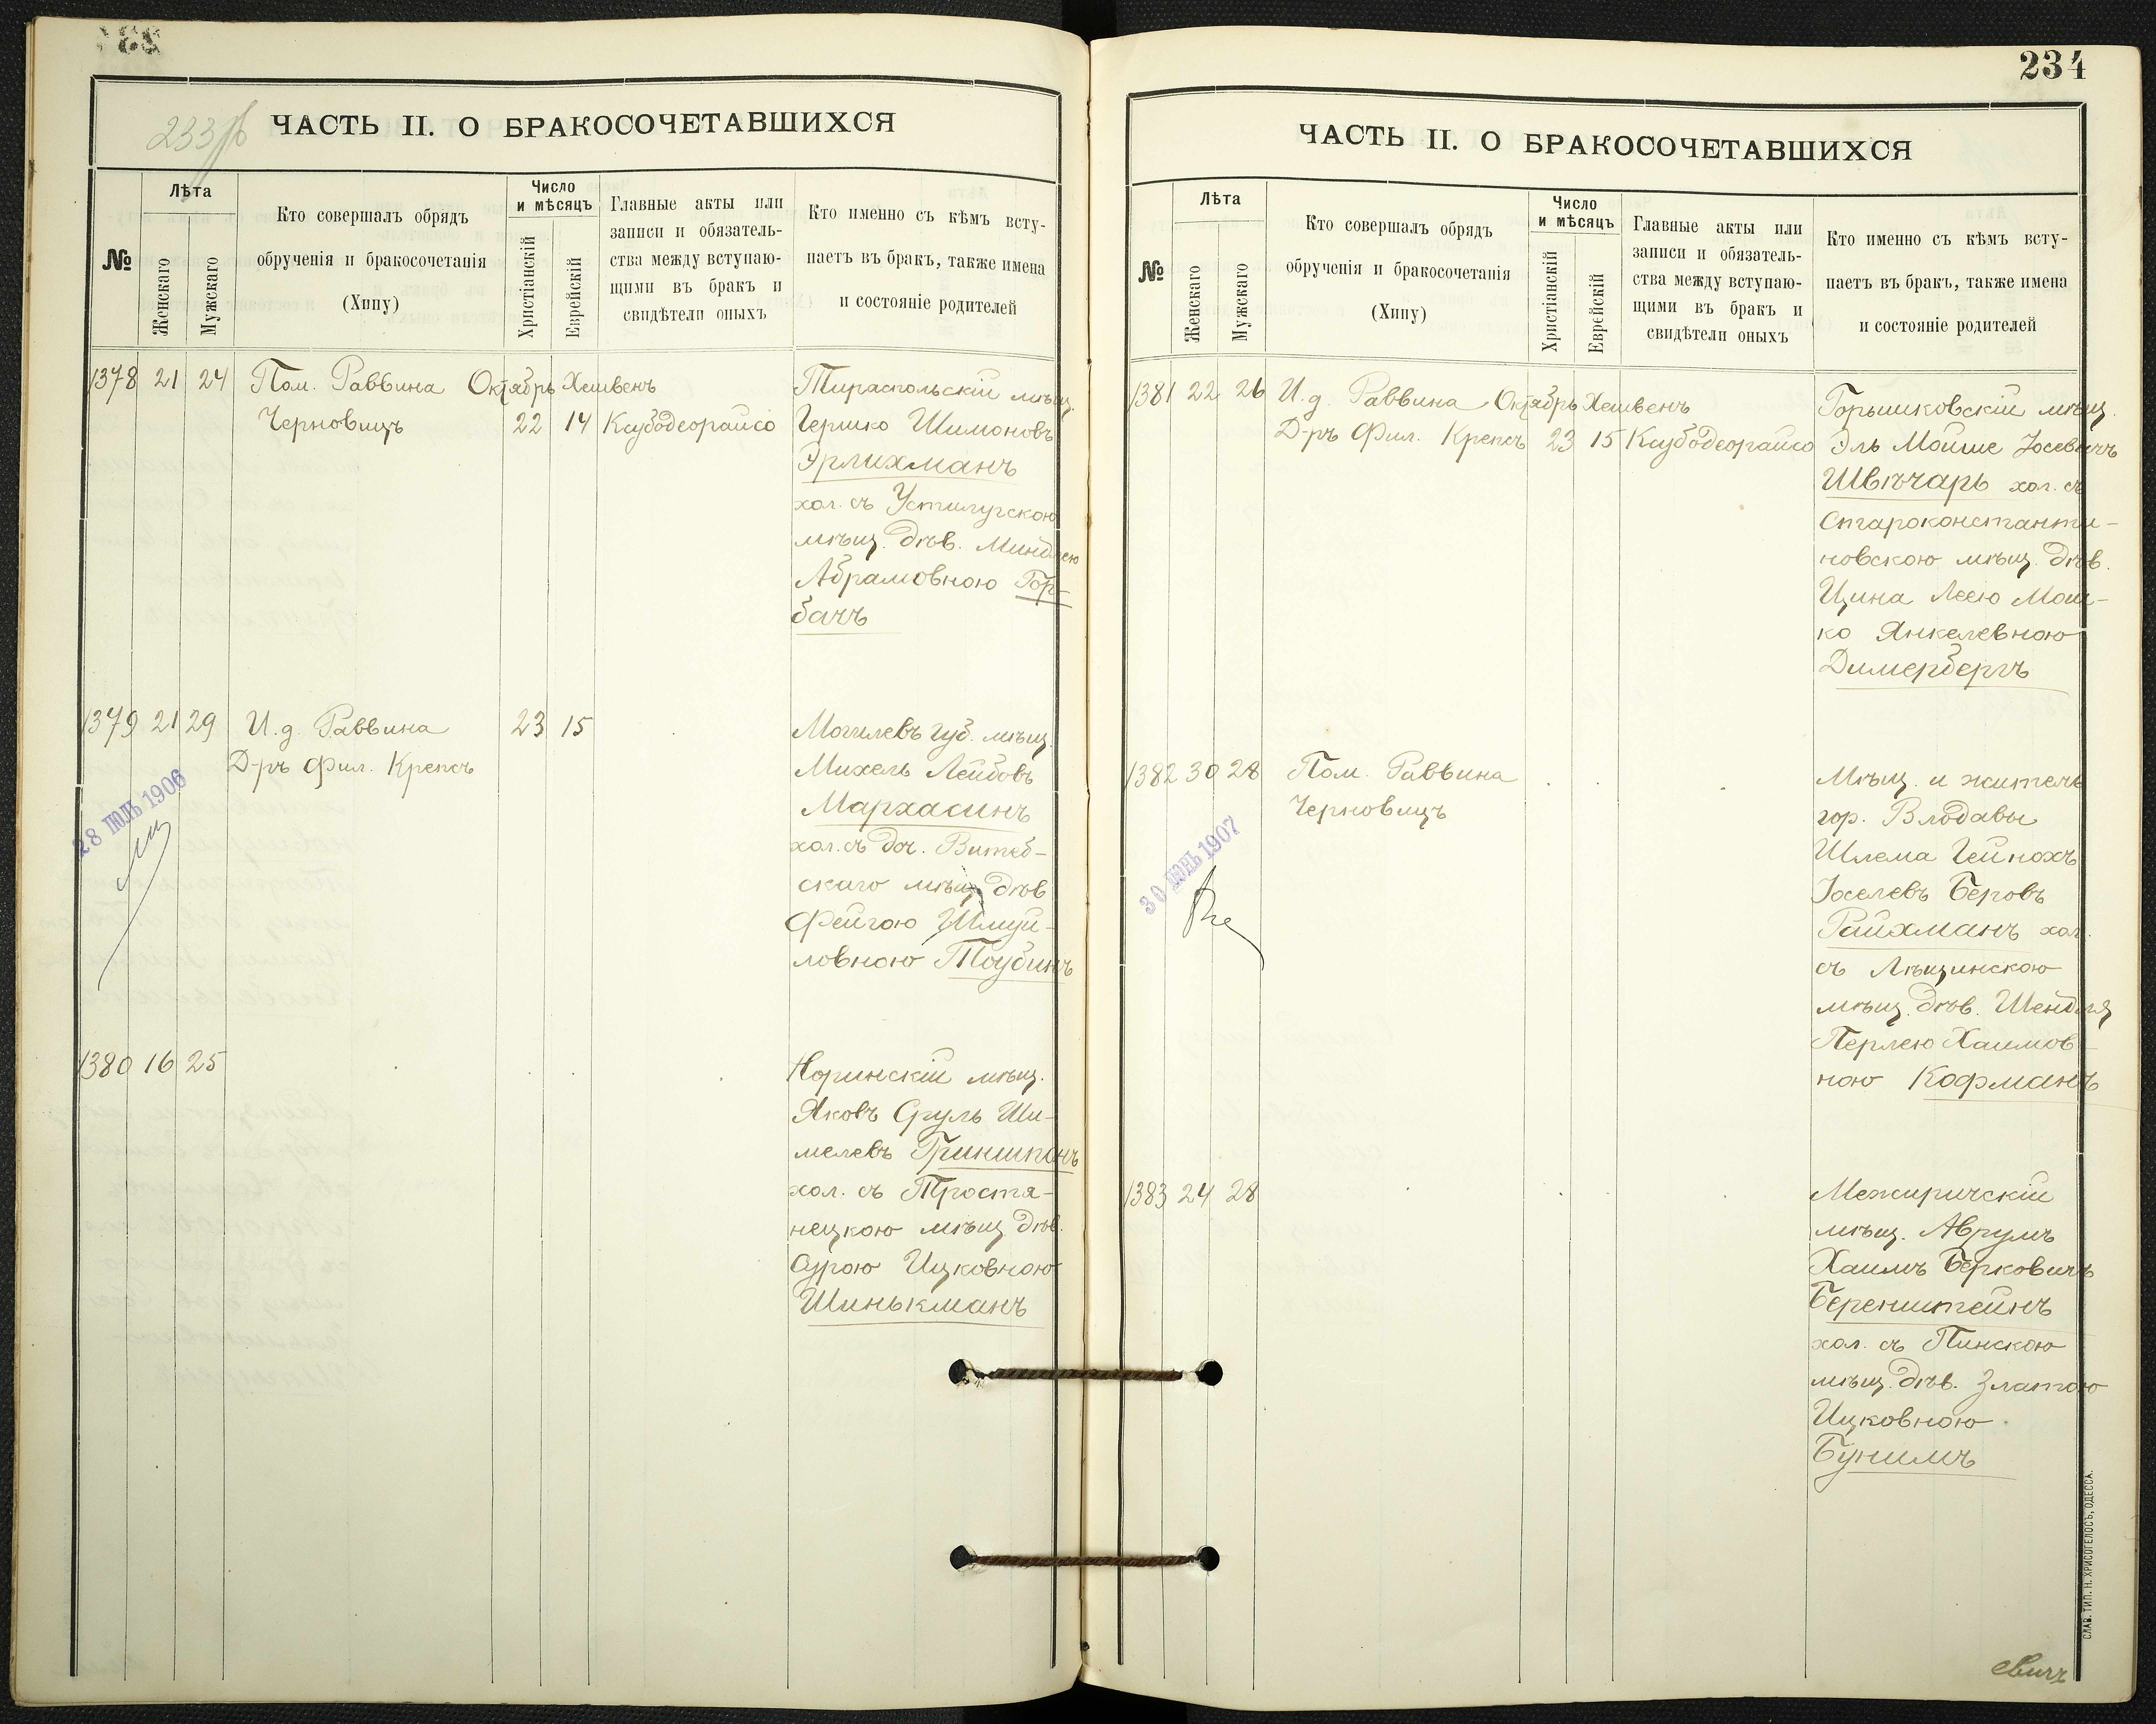 233 об
ЧАСТЬ II. О БРАКОСОЧЕТАВШИХСЯ
№
Лѣта
Женскаго
Мужскаго
Кто совершалъ обрядъ
обрученія и бракосочетанія
(Хипу)
Число
и мѣсяцъ
Христіанскій
Еврейскій
Главные акты или
записи и обязатель-
ства между вступаю-
щими въ бракъ и
свидѣтели оныхъ
Кто именно съ кѣмъ всту-
паетъ въ бракъ, также имена
и состояніе родителей
1378 21 24 Пом. Раввина Октябрь Хешвенъ Тираспольскій мѣщ.
Черновицъ 22 14 Ксубодеорайсо Гершко Шимоновъ
Эрлихманъ
хол. съ Устилугскою
мѣщ. дѣв. Миндлею
Абрамовною Гор-
бачъ
1379 21 29 И. д. Раввина 23 15 Могилевъ губ. мѣщ.
Д-ръ Фил. Крепсъ Михель Лейбовъ
Мархасинъ
хол. съ доч. Витеб-
скаго мѣщ. дѣв
Фейгою Шмуй-
ловною Тоубинъ
28 ІЮЛЬ 1906
1380 16 25 Норинскій мѣщ.
Яковъ Сруль Ши-
мелевъ Гриншпонъ
хол. съ Простя-
нецкою мѣщ. дѣв.
Сурою Ицковною
Шинькманъ
234
ЧАСТЬ II. О БРАКОСОЧЕТАВШИХСЯ
№
Лѣта
Женскаго
Мужскаго
Кто совершалъ обрядъ
обрученія и бракосочетанія
(Хипу)
Число
и мѣсяцъ
Христіанскій
Еврейскій
Главные акты или
записи и обязатель-
ства между вступаю-
щими въ бракъ и
свидѣтели оныхъ
Кто именно съ кѣмъ всту-
паетъ въ бракъ, также имена
и состояніе родителей
1381 22 26 И. д. Раввина Октябрь Хешвенъ Горышковскій мѣщ.
Д-ръ Фил. Крепсъ 23 15 Ксубодеорайсо Эль Мойше Іосевичъ
Швѣчарь хол. съ
Староконстанти-
новскою мѣщ. дѣв.
Цина Леею Мош-
ко Янкелевною
Димербергъ
1382 30 28 Пом. Раввина Мѣщ. и житель
Черновицъ гор. Влодавы
Шлема Гейнохъ
Іоселевъ Беровъ
Райхманъ хол.
съ Лѣщинскою
мѣщ. дѣв. Шендля
Перлею Хаимов-
ною Кофманъ
30 ІЮНЬ 1907
1383 24 28 Межиричскій
мѣщ. Аврумъ
Хаимъ Берковичъ
Беренштейнъ
хол. съ Пинскою
мѣщ. дѣв. Златою
Ицковною
Бунимъ
евичъ
СЛАВ. ТИП. Н. ХРИСОГЕЛОСЪ, ОДЕССА.